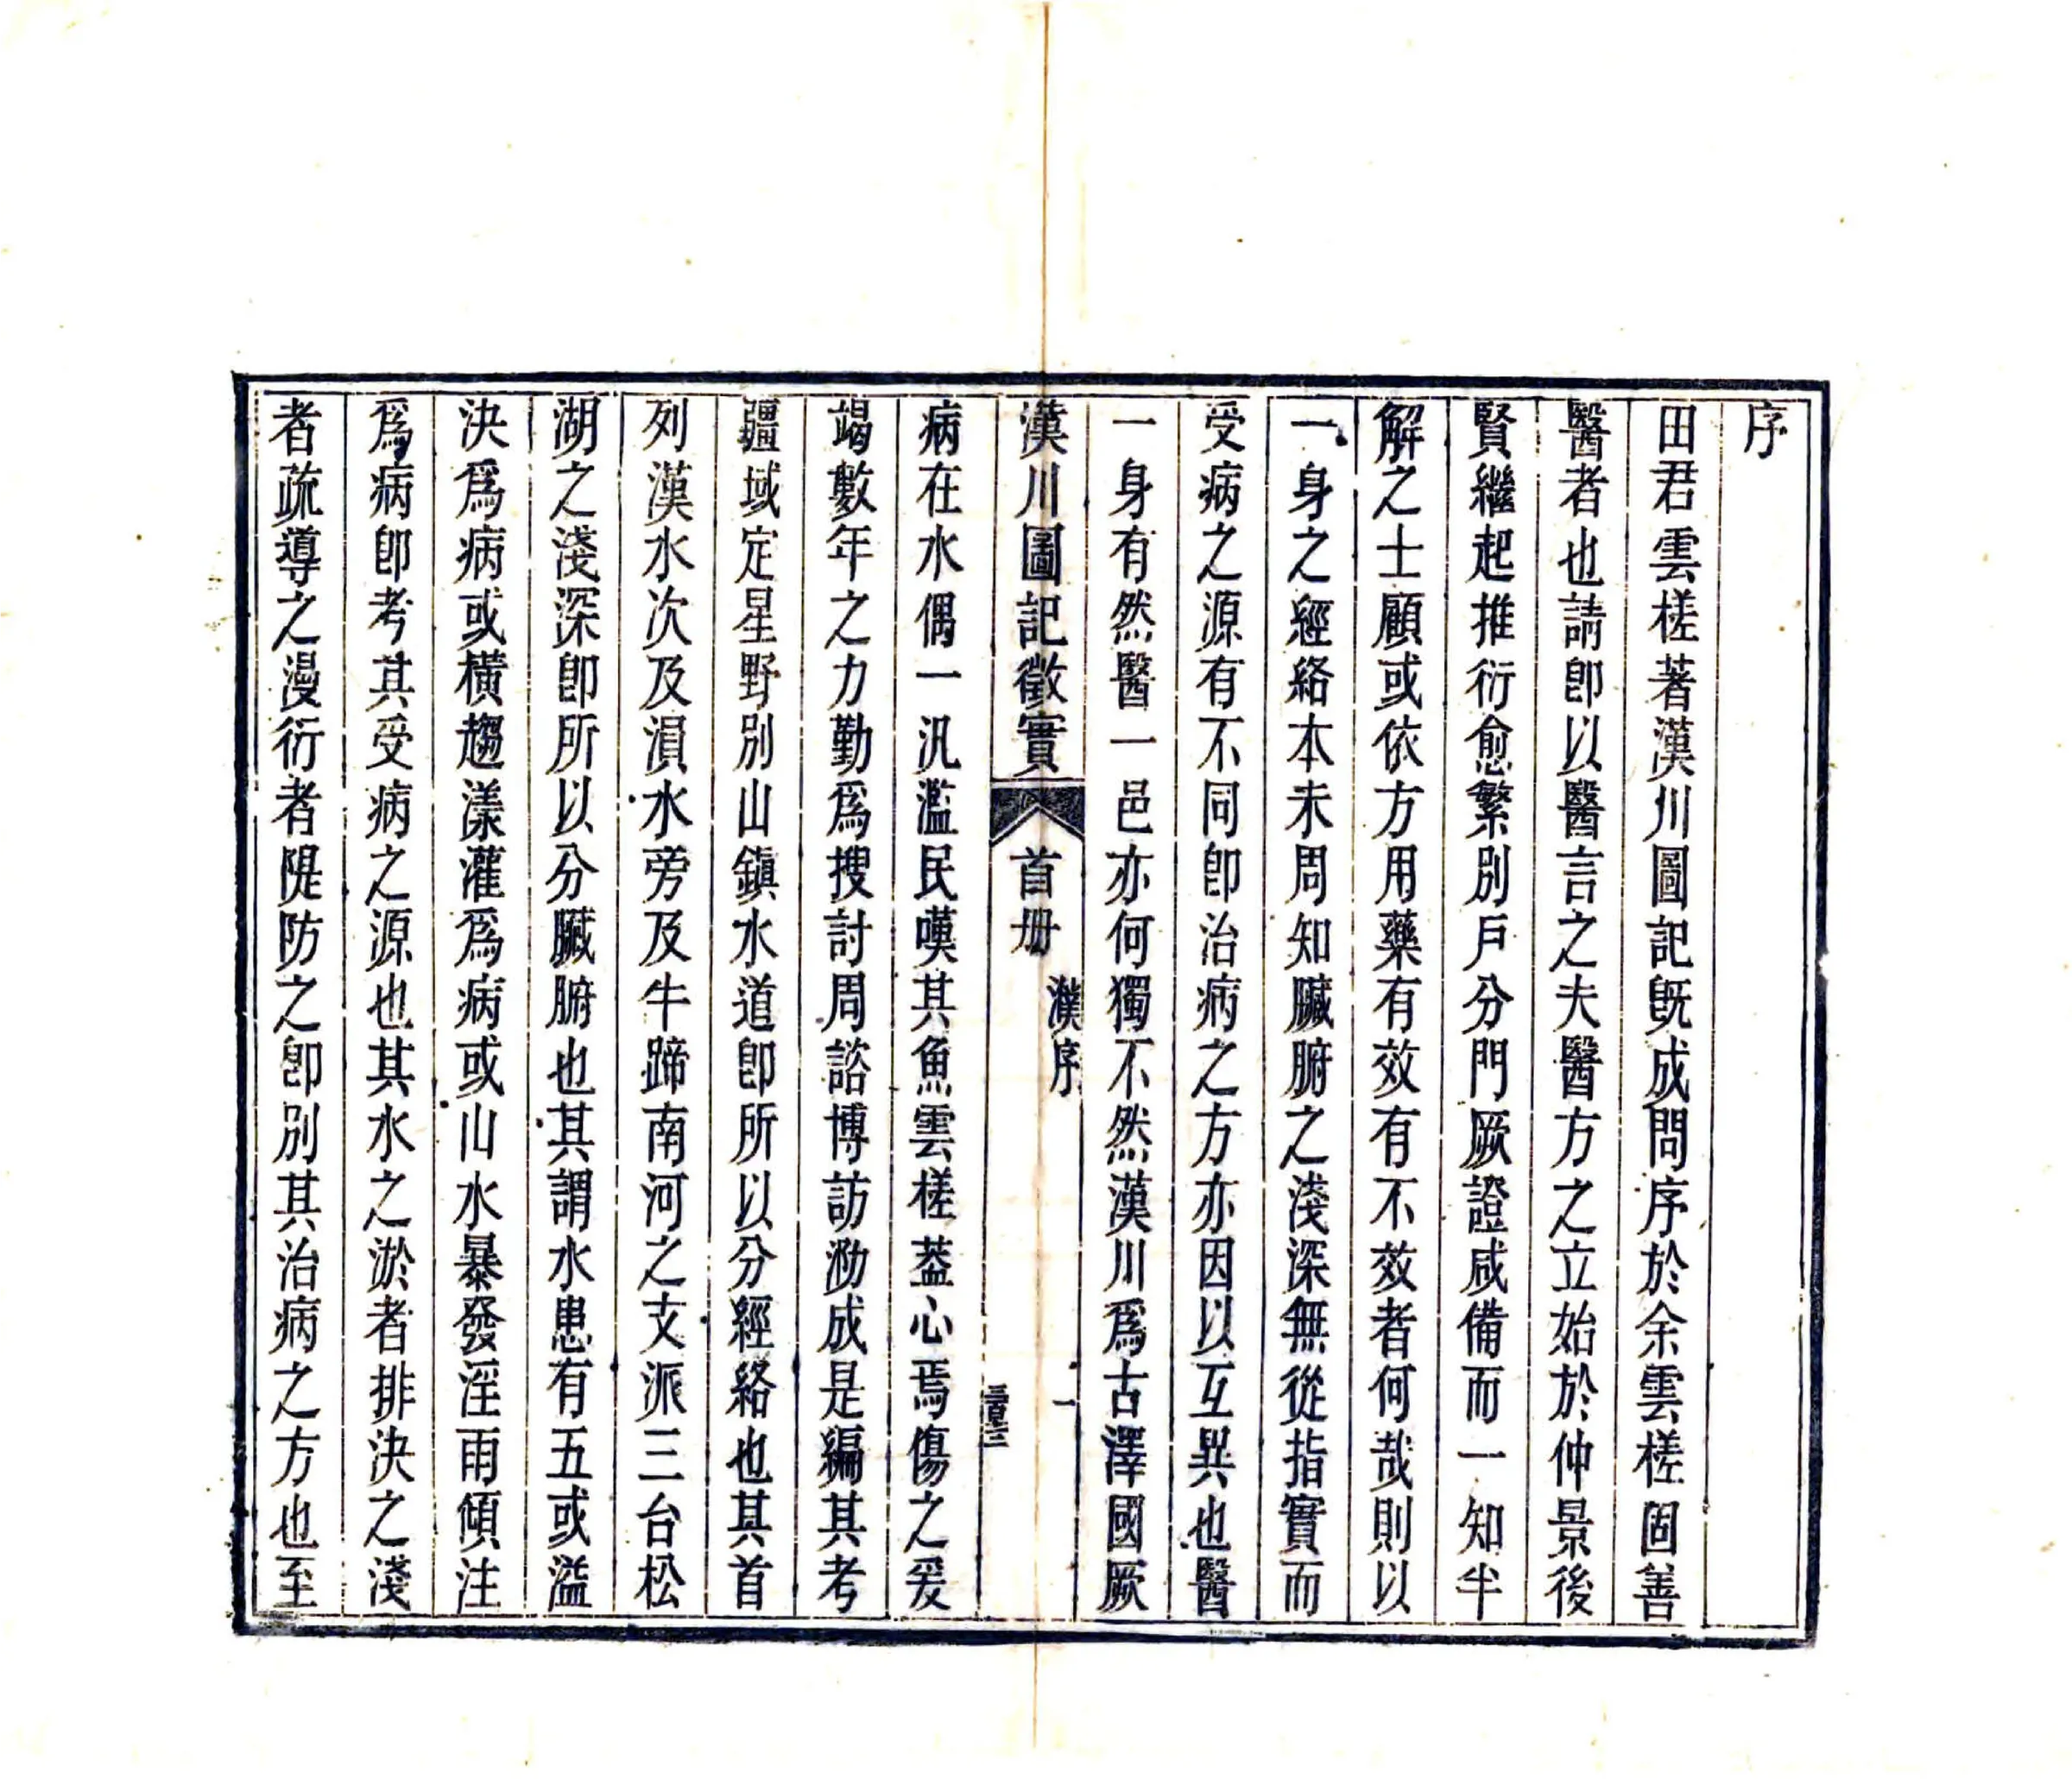 序
田君雲槎著漢川圖記既成問序於余雲槎固善
醫者也請卽以醫言之夫醫方之立始於仲景後
賢繼起推衍愈繁別戶分門厥證咸備而一知半
解之士顧或依方用藥有效有不效者何哉則以
一身之經絡本未周知臟腑之淺深無從指實而
受病之源有不同卽治病之方亦因以互異也醫
一身有然醫一邑亦何獨不然漢川爲古澤國厥
漢川圖記徵實
首册
濮序
一
病在水偶一汎濫民嘆其魚雲槎葢心焉傷之爰
竭數年之力勤爲搜討周諮博訪泐成是編其考
疆域定星野別山鎭水道卽所以分經絡也其首
列漢水次及溳水旁及牛蹄南河之支派三台松
湖之淺深卽所以分臟腑也其謂水患有五或溢
決爲病或橫趨漾灌爲病或山水暴發淫雨傾注
爲病卽考其受病之源也其水之淤者排決之淺
者疏導之漫衍者隄防之卽別其治病之方也至